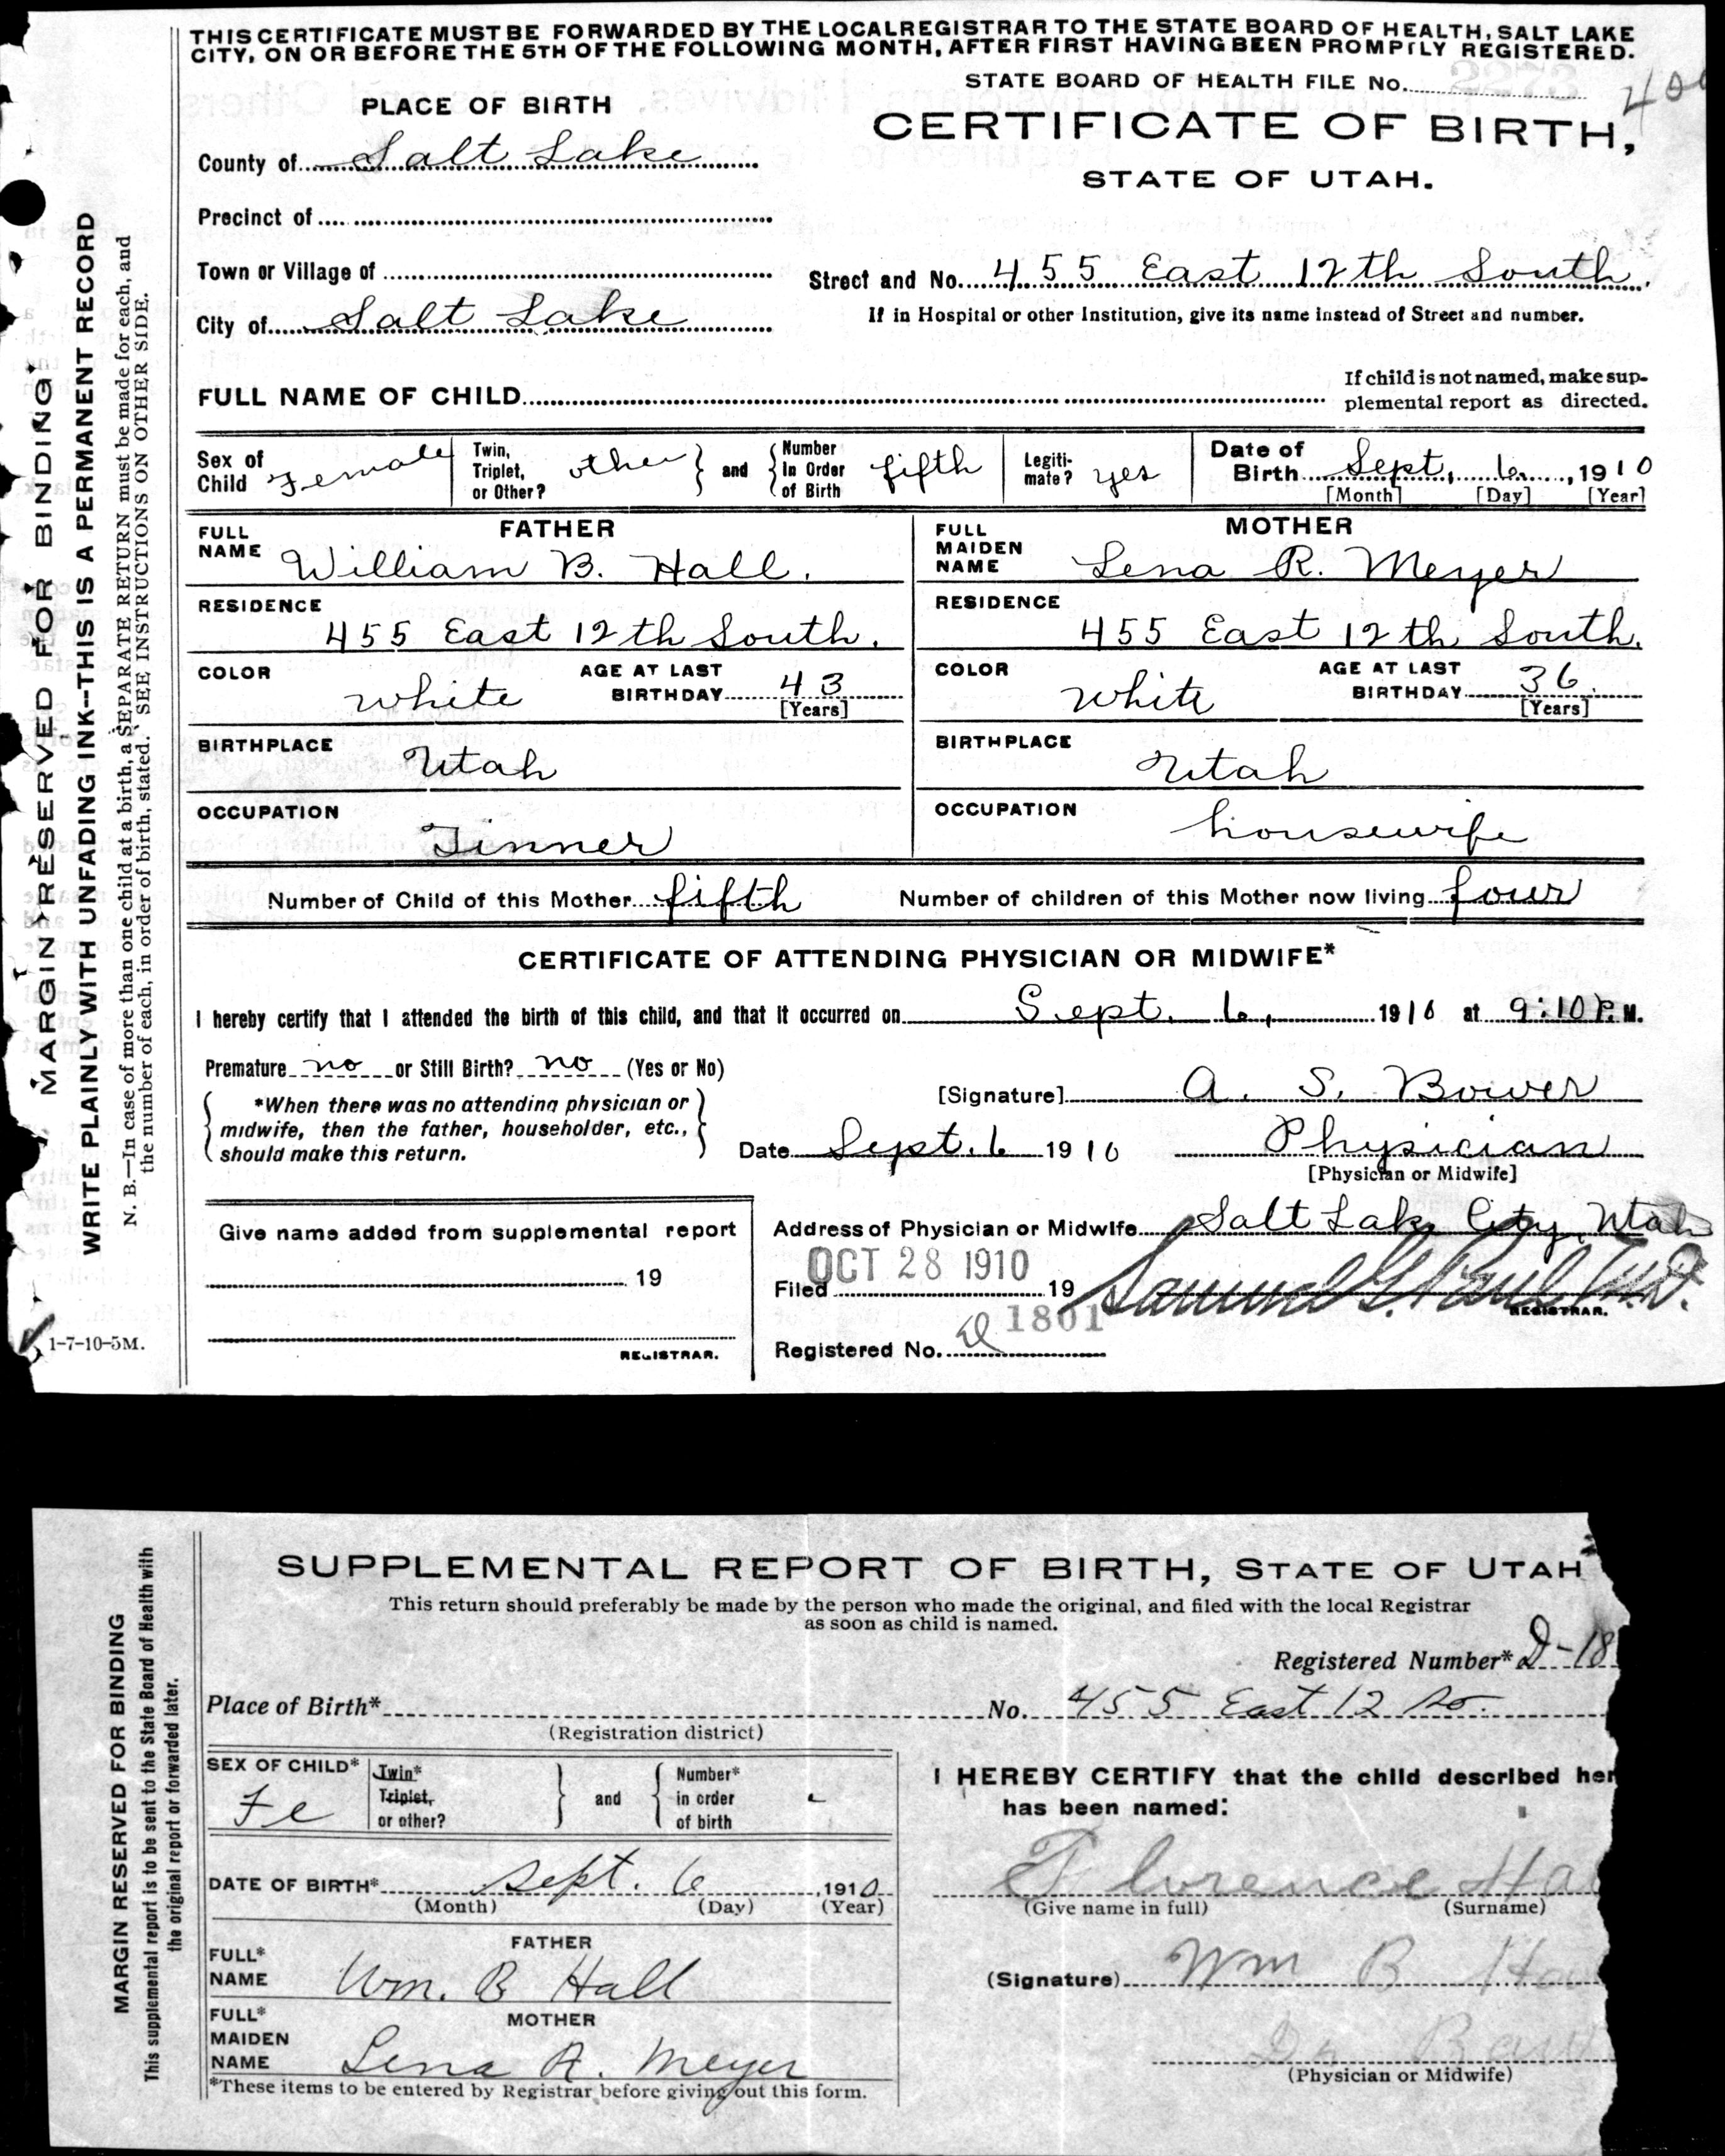 THIS CERTIFICATE MUST BE FORWARDED BY THE LOCAL REGISTRAR TO THE STATE BOARD OF HEALTH, SALT LAKE
CITY, ON OR BEFORE THE 5TH OF THE FOLLOWING MONTH, AFTER FIRST HAVING BEEN PROMPTLY REGISTERED.
STATE BOARD OF HEALTH FILE No.
PLACE OF BIRTH
CERTIFICATE OF BIRTH,
STATE OF UTAH.
County of Salt Lake
Precinct of
Town or Village of
Street and No. 455 East 12th South.
City of Salt Lake
If in Hospital or other Institution, give its name instead of Street and number.
FULL NAME OF CHILD
If child is not named, make sup-
plemental report as directed.
Sex of Child Female
Twin, Triplet, or Other? other
and Number In Order of Birth fifth
Legiti-mate? yes
Date of Birth Sept. 6, 1910
[Month] [Day] [Year]
FATHER
FULL NAME William B. Hall.
RESIDENCE
455 East 12th South.
COLOR white
AGE AT LAST BIRTHDAY 43
[Years]
BIRTHPLACE
Utah
OCCUPATION
Tinner
MOTHER
FULL MAIDEN NAME Lena R. Meyer
RESIDENCE
455 East 12th South.
COLOR White
AGE AT LAST BIRTHDAY 36
[Years]
BIRTHPLACE
Utah
OCCUPATION
housewife
Number of Child of this Mother fifth
Number of children of this Mother now living four
CERTIFICATE OF ATTENDING PHYSICIAN OR MIDWIFE*
I hereby certify that I attended the birth of this child, and that it occurred on Sept. 6, 1910 at 9:10 P. M.
Premature no or Still Birth? no (Yes or No)
*When there was no attending physician or
midwife, then the father, householder, etc.,
should make this return.
[Signature] A. S. Bower
Date Sept. 6 1910
Physician
[Physician or Midwife]
Give name added from supplemental report
19
REGISTRAR.
Address of Physician or Midwife Salt Lake City, Utah
Filed OCT 28 1910 19
Samuel G. Paul M.D.
REGISTRAR.
Registered No. D 1801
MARGIN RESERVED FOR BINDING
WRITE PLAINLY WITH UNFADING INK—THIS IS A PERMANENT RECORD
N. B.—In case of more than one child at a birth, a SEPARATE RETURN must be made for each, and
the number of each, in order of birth, stated. SEE INSTRUCTIONS ON OTHER SIDE.
1-7-10-5M.
SUPPLEMENTAL REPORT OF BIRTH, STATE OF UTAH
This return should preferably be made by the person who made the original, and filed with the local Registrar
as soon as child is named.
Registered Number* D-18
Place of Birth* No. 455 East 12 So.
(Registration district)
SEX OF CHILD* Fe
Twin*
Triplet,
or other?
and
Number*
in order
of birth
DATE OF BIRTH* Sept. 6, 1910
(Month) (Day) (Year)
FATHER
FULL* NAME Wm. B Hall
MOTHER
FULL* MAIDEN NAME Lena R. Meyer
*These items to be entered by Registrar before giving out this form.
I HEREBY CERTIFY that the child described her
has been named:
Florence Ha
(Give name in full) (Surname)
(Signature) Wm B Ha
(Physician or Midwife)
MARGIN RESERVED FOR BINDING
This supplemental report is to be sent to the State Board of Health with
the original report or forwarded later.